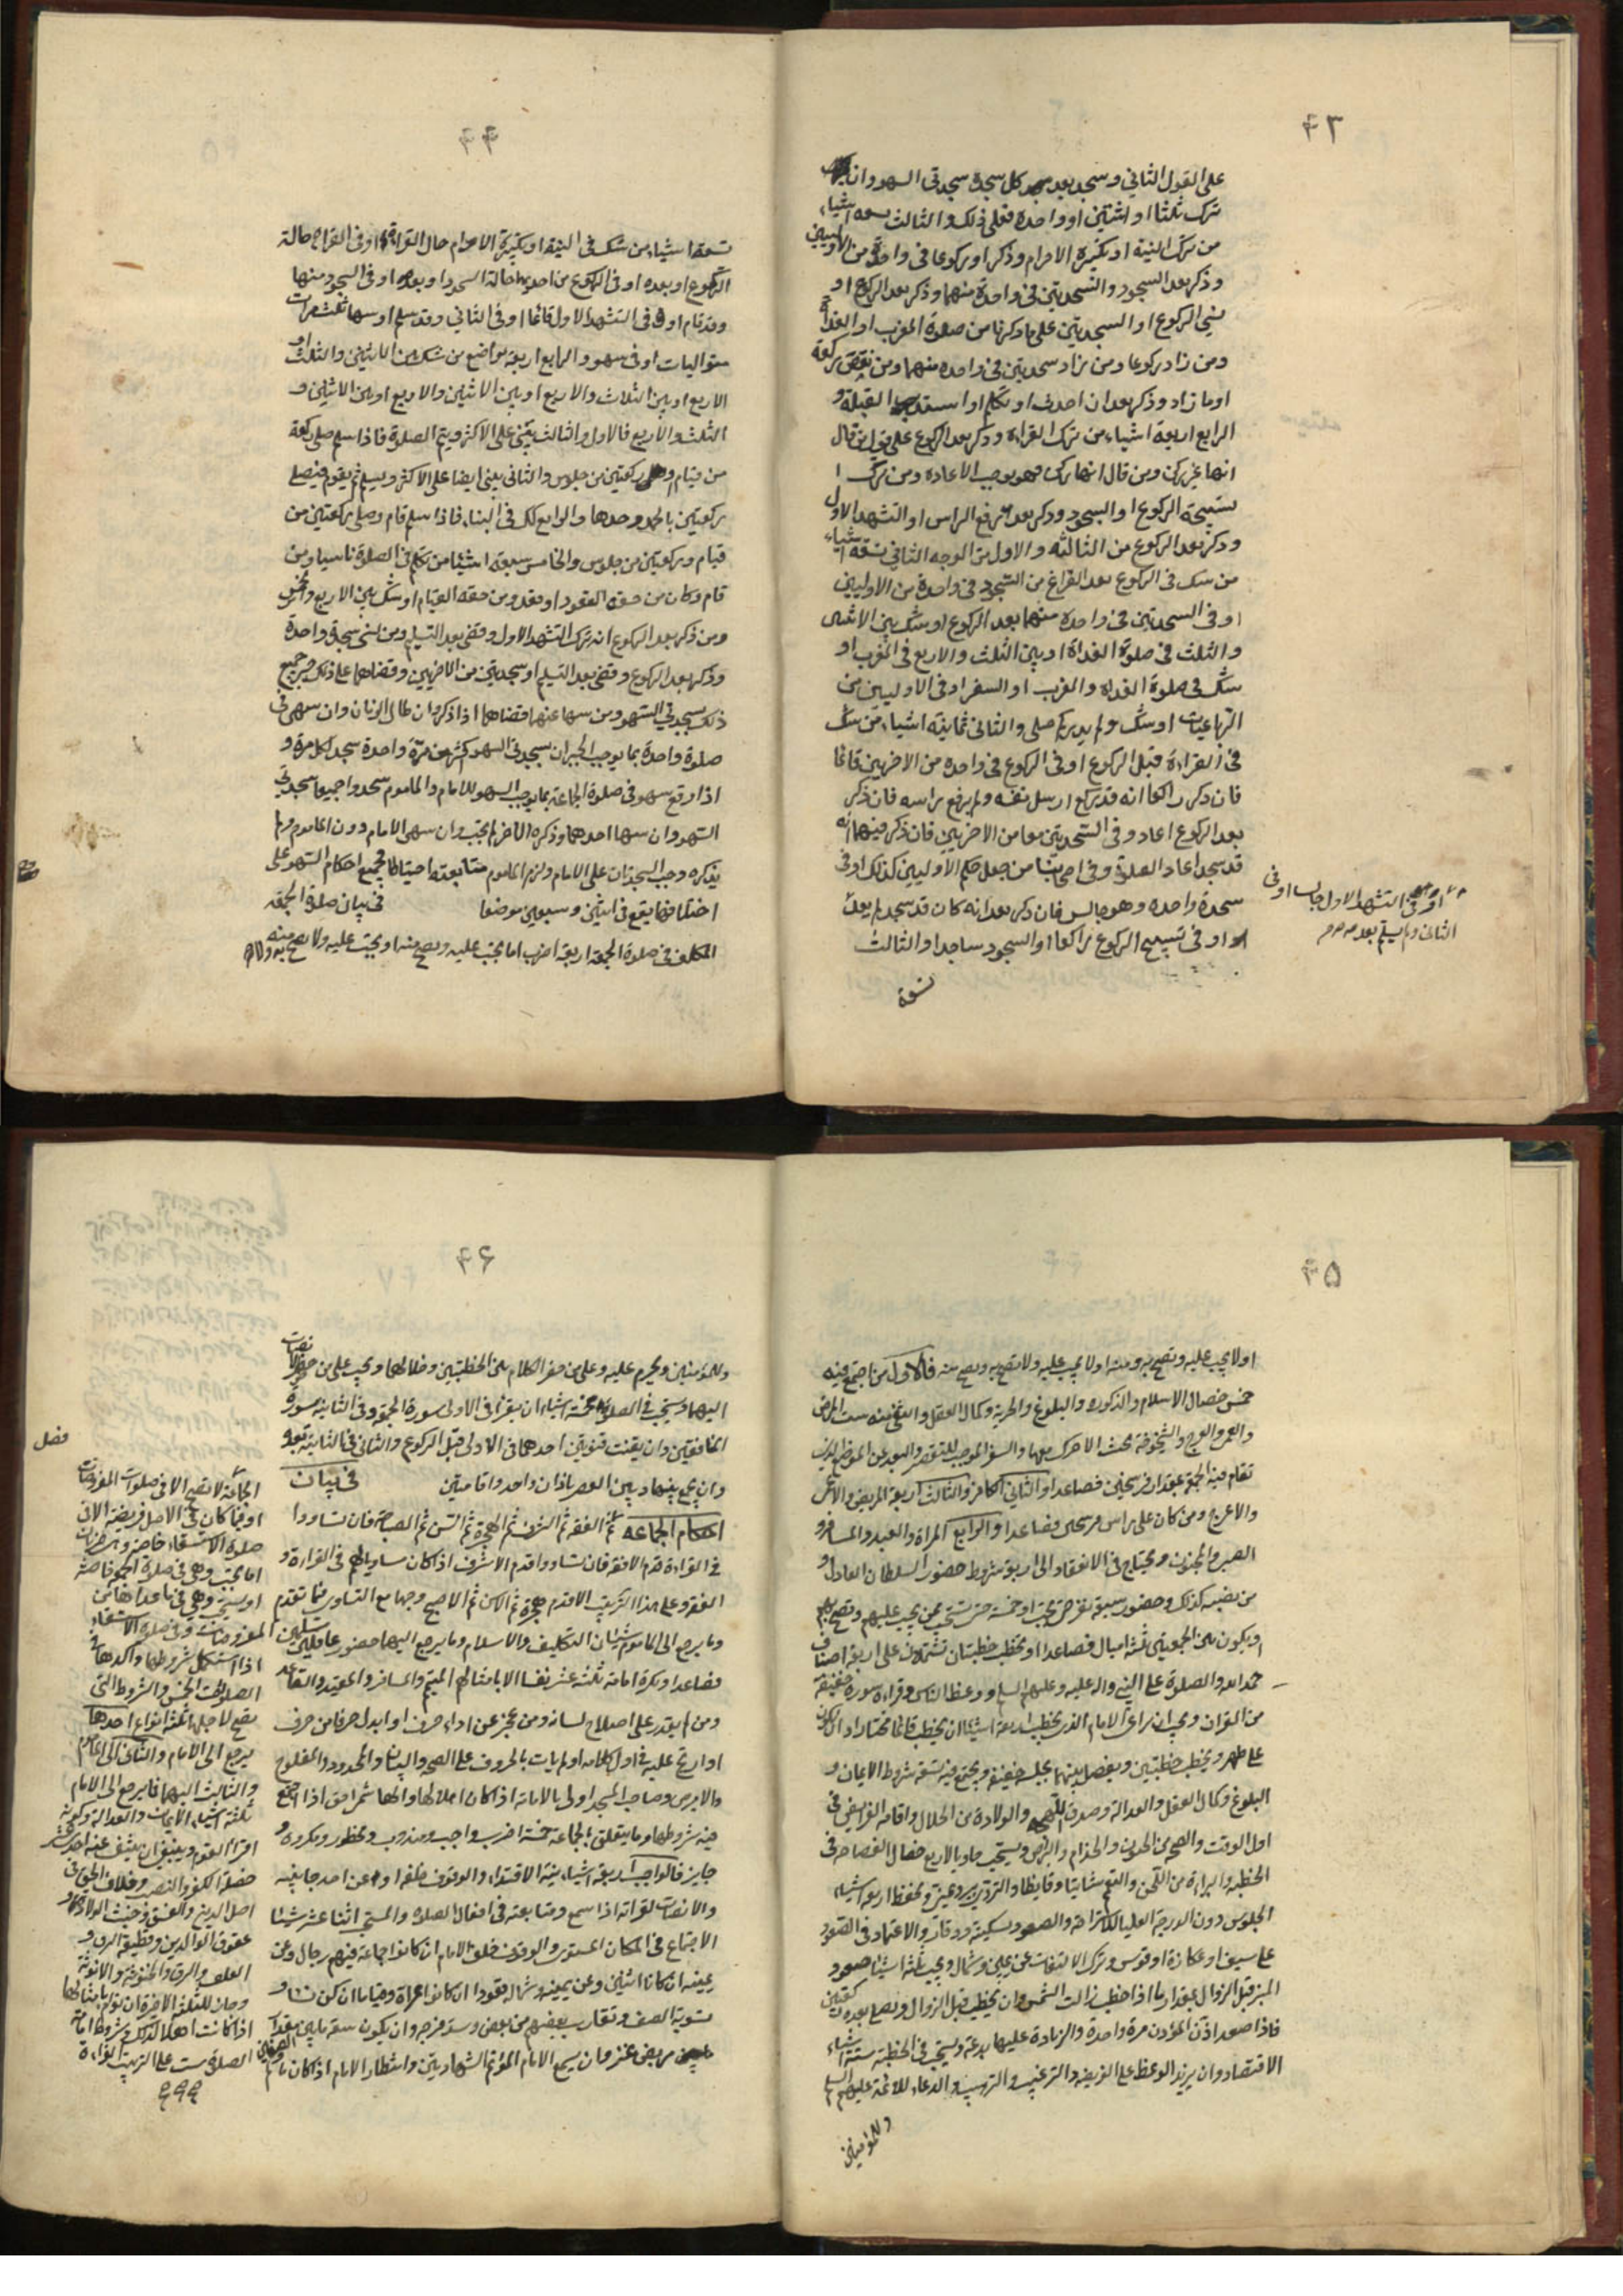 ۴۳
على القول الثاني وسجد بعد كل سجدة سجدتي السهو وان
ترك ثلثا او اثنتين او واحدة فعلى ذلك والثالث تسعه اشياء
من ترك النية او تكبيرة الاحرام وذكر او ركوعا في واحدة من الاوليين
وذكر بعد السجود والسجدتين في واحدة منهما وذكر بعد الركوع او
نسي الركوع او السجدتين على ما ذكرنا من صلوة المغرب او الغداة
ومن زاد ركوعا ومن زاد سجدتين في واحدة منهما ومن نقص ركعة
او ما زاد وذكر بعد ان احدث او تكلم او استدبر القبلة و
الرابع اربعة اشياء من ترك القراءة وذكر بعد الركوع على قول من قال
انها غير ركن ومن قال انها ركن فهو يوجب الاعاده ومن ترك
تسبيحة الركوع او السجود وذكر بعد رفع الراس او التشهد الاول
وذكر بعد الركوع من الثالثة والاول من الوجه الثاني تسعة اشياء
من شك في الركوع بعد الفراغ من السجود في واحدة من الاوليين
او في السجدتين في واحدة منهما بعد الركوع او شك بين الاثنين
والثلث في صلوة الغداة او بين الثلث والاربع في المغرب او
شك في صلوة الغداة والمغرب او السفر او في الاوليين من
الرباعيات او شك ولم يدر كم صلى والثاني ثمانية اشياء من شك
في القراءة قبل الركوع او في الركوع في واحدة من الاخريين قائما
فان ذكر راكعا انه قد ركع ارسل نفسه ولم يرفع راسه فان ذكر
بعد الركوع اعاد وفي السجدتين معا من الاخريين فان ذكر فيهما انه
قد سجد اعاد الصلوة وفي اصحابنا من جعل حكم الاوليين كذلك او في
سجدة واحدة وهو جالس فان ذكر بعد انه كان قد سجد لم يعد
او في تسبيح الركوع راكعا او السجود ساجدا والثالث
او في التشهد الاول جالسا او في
الثاني ولم يسلم بعد
تسعة
۴۴
تسعة اشياء من شك في النية او تكبيرة الاحرام حال القراءة او في القراءة حالة
الركوع او بعده او في الركوع من احديها حالة السجود او بعده او في السجود منها
وقد قام او في التشهد الاول قائما او في الثاني وقد سلم او سها ثلث مرات
متواليات او في سهو والرابع اربعة مواضع من شك بين الاثنتين والثلث او
الاربع او بين الثلاث والاربع او بين الاثنين والاربع او بين الاثنين و
الثلث والاربع فالاول والثالث يبني على الاكثر ويتم الصلوة فاذا سلم صلى ركعة
من قيام او ركعتين من جلوس والثاني يبني ايضا على الاكثر ويسلم ثم يقوم فيصلي
ركعتين بالحمد وحدها والرابع كك في البناء فاذا سلم قام وصلى ركعتين من
قيام وركعتين من جلوس والخامس سبعة اشياء من تكلم في الصلوة ناسيا ومن
قام وكان من حقه القعود او قعد ومن حقه القيام او شك بين الاربع والخمس
ومن ذكر بعد الركوع انه ترك التشهد الاول وقضى بعد التسليم ومن نسي سجدة واحدة
وذكرها بعد الركوع وقضى بعد التسليم او سجدتين من الاخريين وقضاهما على ذلك جميع
ذلك سجدتي السهو ومن سها عنهما قضاهما اذا ذكر وان طال الزمان وان سهى في
صلوة واحدة بما يوجب الجبران بسجدتي السهو اكثر من مرة واحدة سجد لكل مرة و
اذا وقع سهو في صلوة الجماعة بما يوجب السهو للامام والماموم سجدوا جميعا سجدتي
السهو وان سها احدهما وذكره الاخر لم يجب وان سهى الامام دون الماموم ولم
يذكره وجب السجدتان على الامام ولزم الماموم متابعته احتياطا فجميع احكام السهو على
اختلافها يقع في اثنين وسبعين موضعا في بيان صلوة الجمعة
المكلف في صلوة الجمعة اربعة اضرب اما يجب عليه ويصح منه او يجب عليه ولا يصح منه
۴۵
او لا يجب عليه وتصح به ومنه او لا يجب عليه ولا تصح به وتصح منه فالاول من اجتمع فيه
خمس خصال الاسلام والذكورة والبلوغ والحرية وكمال العقل وانتفى عنه ست المرض
والعمى والعرج والشيخوخة بحيث لا حراك بها والسفر الموجب للتقصير والبعد عن الموضع الذي
تقام فيه الجمعة بمقدار فرسخين فصاعدا والثاني الكافر والثالث اربعة المريض والاعمى
والاعرج ومن كان على راس فرسخين فصاعدا والرابع المراة والعبد والمسافر و
الصبي والمجنون ويحتاج في الانعقاد الى اربعة شروط حضور السلطان العادل او
من نصبه كذلك وحضور سبعة نفر حتى تجب او خمسة حتى تستحب ممن يجب عليهم وتصح بهم
ويكون بين الجمعتين ثلثة اميال فصاعدا او يخطب خطبتان تشتملان على اربعة اصناف
حمد الله والصلوة على النبي واله عليه وعليهم السلم ووعظ الناس وقراءة سورة خفيفة
من القران ويجب ان يراعي الامام الذي يخطب اربعة اشياء ان يخطب قائما مختارا وان يكون
على طهر ويخطب خطبتين ويفصل بينهما بجلسة خفيفة ويجتمع فيه تسعة شروط الايمان و
البلوغ وكمال العقل والعدالة وصدق اللهجة والولادة من الحلال واقامة الفرايض في
اول الوقت والصحة من الجنون والجذام والبرص ويستحب حاويا لاربع خصال الفصاحة في
الخطبة والبراءة من اللحن والتعمم شاتيا وقايظا والتردي ببرد وغيره ويحفظ اربعة اشياء
الجلوس دون الدرجة العليا للاستراحة والصعود بسكينة ووقار والاعتماد في الصعود
على سيف او عكازة او قوس وترك الالتفات عن يمين وشمال ويجب ثلثة اشياء صعود
المنبر قبل الزوال بمقدار ما اذا خطب زالت الشمس وان يخطب قبل الزوال ويصلي بعده ركعتين
فاذا صعد اذن المؤذن مرة واحدة والزيادة عليها بدعة ويستحب في الخطبة ستة اشياء
الاقتصاد وان يزيد الوعظ على الفريضة والترغيب والترهيب والدعاء للائمة عليهم السلم
وللمؤمنين
۴۶
وللمؤمنين ويحرم عليه وعلى من حضر الكلام بين الخطبتين وخلالهما ويجب على من حضر الانصات
اليهما ويستحب في الصلوة خمسة اشياء ان يقرا في الاولى سورة الجمعة وفي الثانية سورة
المنافقين وان يقنت قنوتين احدهما في الاولى قبل الركوع والثاني في الثانية بعده
وان يجمع بينها وبين العصر باذان واحد واقامتين في بيان
احكام الجماعة ثم الفقه ثم الشرف ثم الهجرة ثم السن ثم الصباحة فان تساووا
في القراءة قدم الافقه فان تساووا قدم الاشرف اذا كان مساويا لهم في القراءة و
الفقه وعلى هذا الترتيب الاقدم هجرة ثم الاسن ثم الاصبح وجها مع التساوي فيما تقدم
وما يرجع الى الماموم شيئان التكليف والاسلام وما يرجع اليهما حضور عاقلين مسلمين
فصاعدا ويكره امامة ثلثة عشر نفسا الا بامثالهم المتيمم والمسافر والمقيد والقاعد
ومن لم يقدر على اصلاح لسانه ومن عجز عن اداء حرف او ابدل حرفا من حرف
او ارتج عليه في اول كلامه او لم يات بالحروف على الصحة والبيان والمحدود والمفلوج
والابرص وصاحب المسجد اولى بالامامة اذا كان اهلا لها
فيه شروطها وما يتعلق بالجماعة خمسة اضرب واجب ومندوب ومحظور ومكروه و
جايز فالواجب اربعة اشياء نية الاقتداء والوقوف خلفه او عن احد جانبيه
والانصات لقراته اذا سمع ومتابعته في افعال الصلوة والمستحب اثنا عشر شيئا
الاجتماع في المكان المستوي والوقوف خلف الامام ان كانوا جماعة فيهم رجال وعن
يمينه ان كانا اثنين وعن يمينه وشماله قعودا ان كانوا عراة وقياما ان كن نساء و
تسوية الصف وتقارب بعضهم من بعض وسد فرجه وان يكون سعة ما بين الصفين مقدار
مربض عنز وان يسمع الامام المؤتم الشهادتين وانتظار الامام اذا كان
فصل
الجماعة لا تصح الا في صلوات المفروضات
او فيما كان في الاصل فريضة الا في
صلوة الاستسقاء خاصة وهي ضربان
اما يجب وهي في صلوة الجمعة خاصة
او يستحب وهي في ما عداها من
المفروضات وفي صلوة الاستسقاء
اذا استكمل شروطها واكدها في
الصلوات الخمس والشروط التي
يصح لاجلها ثلثة انواع احدها
يرجع الى الامام والثاني الى الماموم
والثالث اليهما فما يرجع الى الامام
ثلثة اشياء الايمان والعدالة وكونه
اقرا القوم وينبغي ان ينتفي عنه احد عشر
خصلة الكفر والنصب وخلاف الحق في
اصل الدين والفسق وخبث الولادة و
عقوق الوالدين وقطيعة الرحم و
العلف والرق والخنوثة والانوثة
وجاز للثلثة الاخيرة ان تؤم بامثالها
اذا كانت اهلا لذلك وشروط امامة
الصلوة ست على الترتيب القراءة